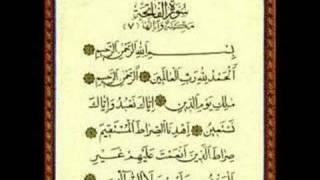 سُورَةُ الفَاتِحَة
مَكيّة وَآيَاتُهَا (٧)
بِسْمِ اللَّهِ الرَّحْمَنِ الرَّحِيمِ
الْحَمْدُ لِلَّهِ رَبِّ الْعَالَمِينَ الرَّحْمَنِ الرَّحِيمِ
مَلِكِ يَوْمِ الدِّينِ إِيَّاكَ نَعْبُدُ وَإِيَّاكَ
نَسْتَعِينُ اهْدِنَا الصِّرَاطَ الْمُسْتَقِيمَ
صِرَاطَ الَّذِينَ أَنْعَمْتَ عَلَيْهِمْ غَيْرِ